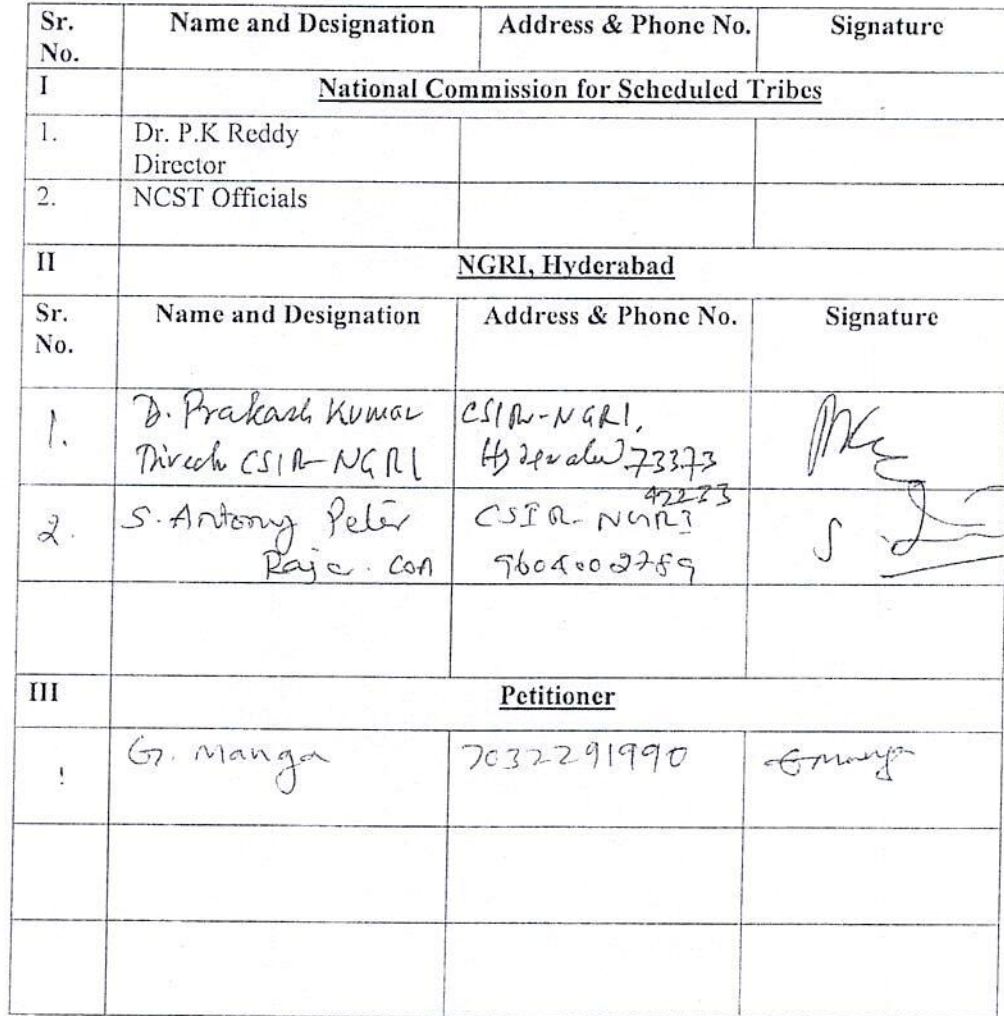 Sr. No. Name and Designation Address & Phone No. Signature
I National Commission for Scheduled Tribes
1. Dr. P.K Reddy
Director
2. NCST Officials
II NGRI, Hyderabad
Sr. No. Name and Designation Address & Phone No. Signature
1. D. Prakash Kumar CSIR-NGRI,
CSIR-NGRI 73373
42233
2. S. Antony Peter CSIR-NGRI
Raja. COA
III Petitioner
G. Manga 7032291990